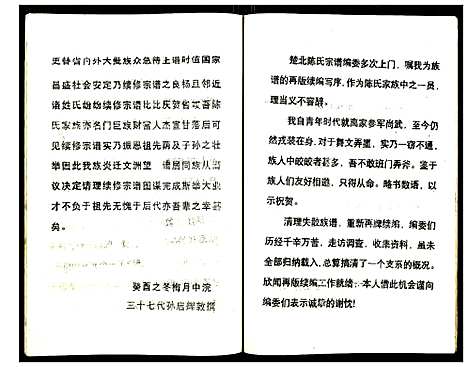 更替省内外大批族众急待上谱时值国家
昌盛社会安定乃续修宗谱之良机且邻近
诸姓氏纷纷续修宗谱比比庆贺省
氏家族亦名门巨族财富人杰宣甘落后可
见续修宗谱实乃振恩祖先荫及子孙之壮
举因此我族炎迁文洲望 谱居同族从商
议决定请理续修宗谱图谋完成斯雄大业
才不负于祖先无愧于后代亦吾辈之幸甚
矣。
癸酉之冬梅月中浣
三十七代孙启辉敦撰
楚北陈氏宗谱编委多次上门,嘱我为族
谱的再版续编写序,作为陈氏家族中之一员,
理当义不容辞。
我自青年时代就离家参军尚武,至今仍
然戎装在身,对于舞文弄墨,实乃一窃不通,
族人中皎皎者甚多,吾不敢班门弄斧。鉴于
族人们友好相邀,只得从命。略书数语,以
示祝贺。
清理失散族谱,重新再牌续编,编委们
历经千辛万苦,走访调查,收集资料,虽未
全部归纳载入,总算搞清了一个支系的概况。
欣闻再版续编工作就绪,本人借此机会谨向
编委们表示诚挚的谢忱!